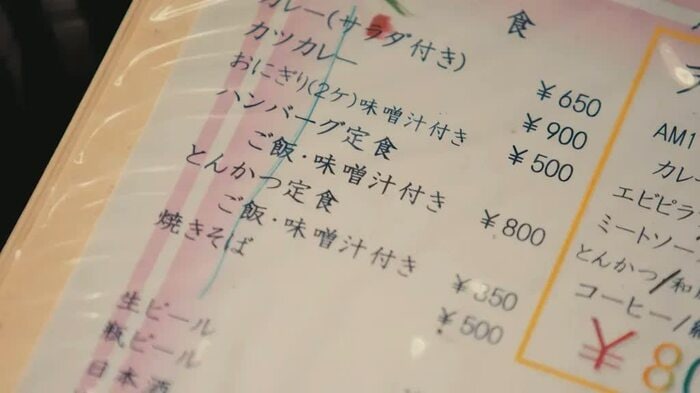 食
カレー(サラダ付き) ¥650
カツカレー ¥900
おにぎり(2ケ)味噌汁付き ¥500
ハンバーグ定食
ご飯・味噌汁付き ¥800
とんかつ定食
ご飯・味噌汁付き ¥350
焼きそば ¥500
生ビール
瓶ビール
日本酒
AM1
カレー
エビピラ
ミートソー
とんかつ/和
コーヒー/
¥80